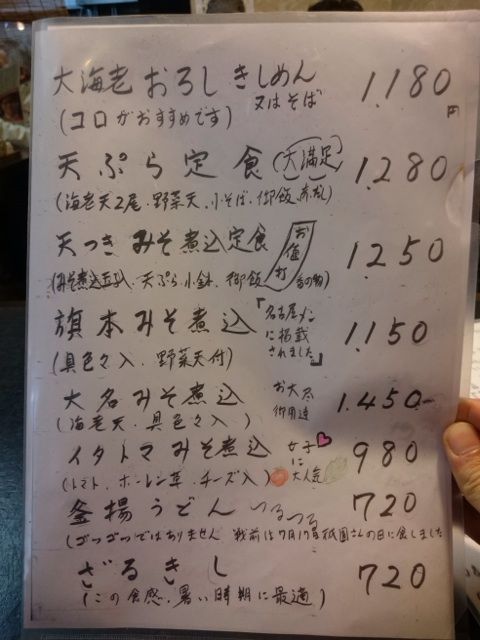 大海老おろしきしめん 1.180円
又はそば
(コロがおすすめです)
天ぷら定食(大満足) 1.280
(海老天2尾.野菜天.小そば.御飯.赤だし)
天つきみそ煮込定食 お値打 1250
(みそ煮込玉入.天ぷら.小鉢.御飯 香の物)
旗本みそ煮込 『名古屋メシに掲載されました』 1.150
(具色々入.野菜天付)
大名みそ煮込 お大尽御用達 1.450-
(海老天.具色々入)
イタトマみそ煮込 女子に大人気 980
(トマト.ホーレン草.チーズ入)
釜揚うどん つるつる 720
(ゴツゴツではありません 戦前は7月17日祇園さんの日に食しました
ざるきし 720
(この食感.暑い時期に最適)